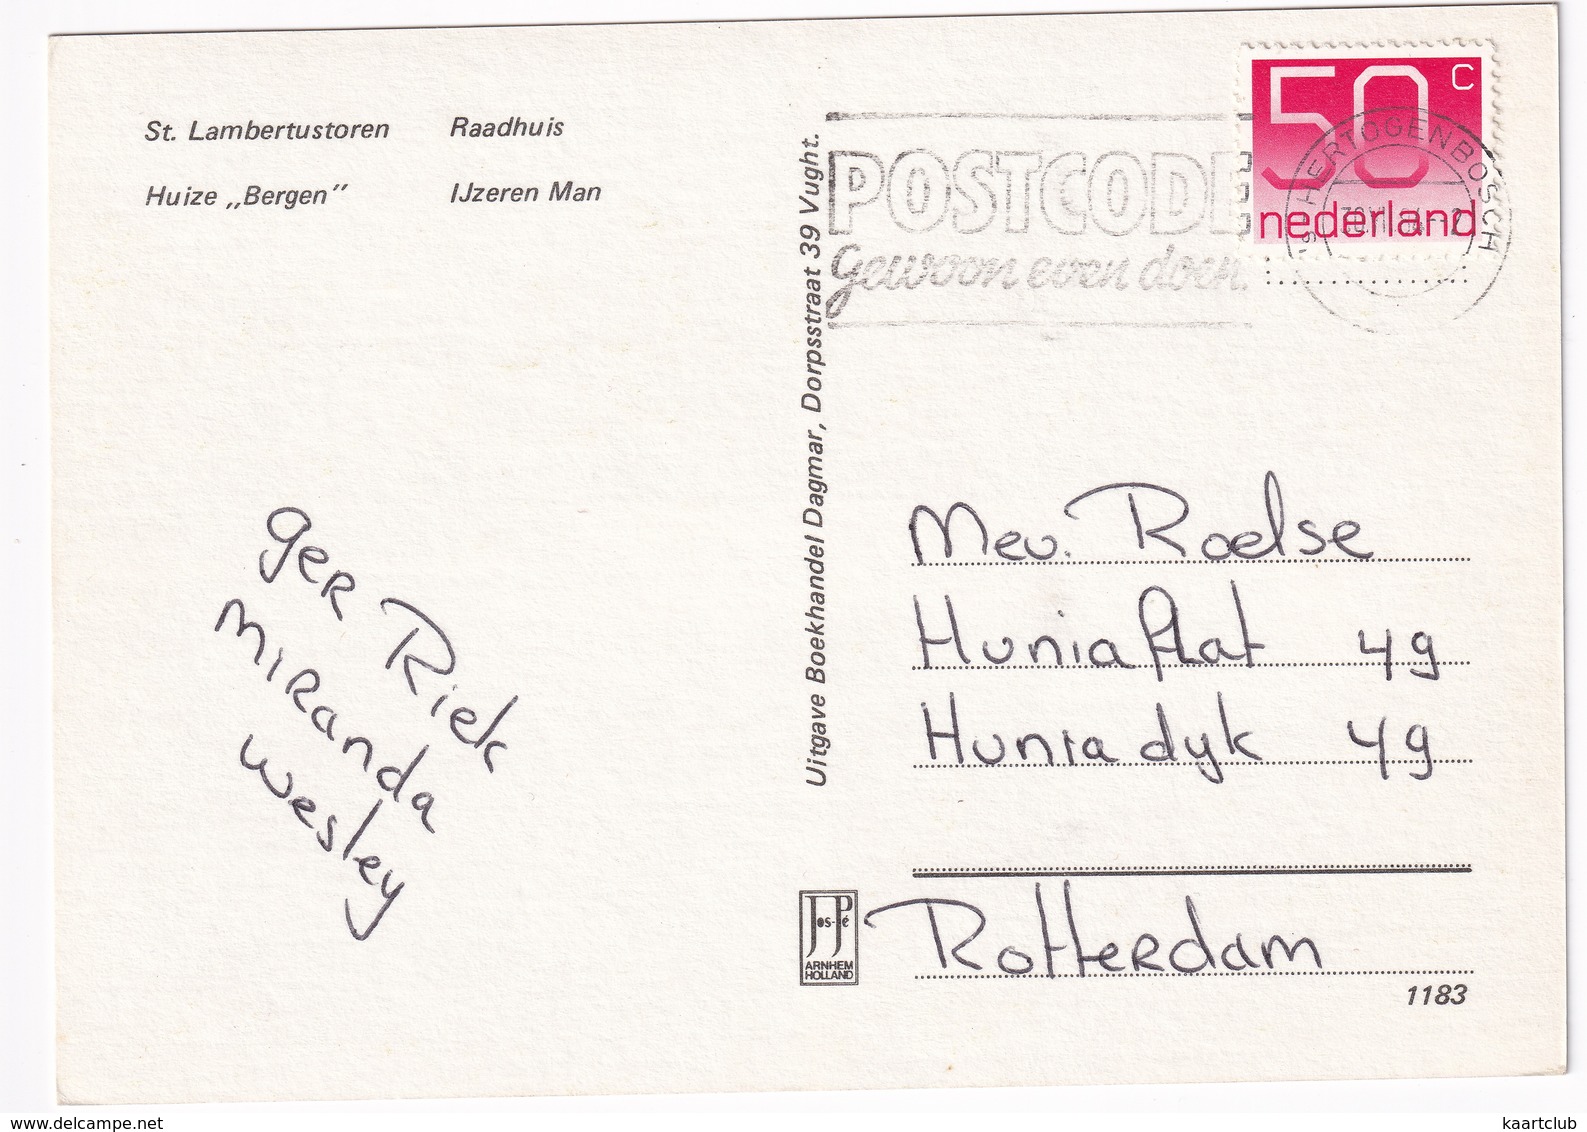 St. Lambertustoren Raadhuis
Huize „Bergen” IJzeren Man
Uitgave Boekhandel Dagmar, Dorpsstraat 39 Vught.
50 c
nederland
POSTCODE
gewoon even doen.
'S HERTOGENBOSCH
ger Riek
Miranda
Wesley
Mev. Roelse
Hunia flat 49
Hunia dyk 49
Rotterdam
Jos-Pé
ARNHEM
HOLLAND
1183
kaartclub